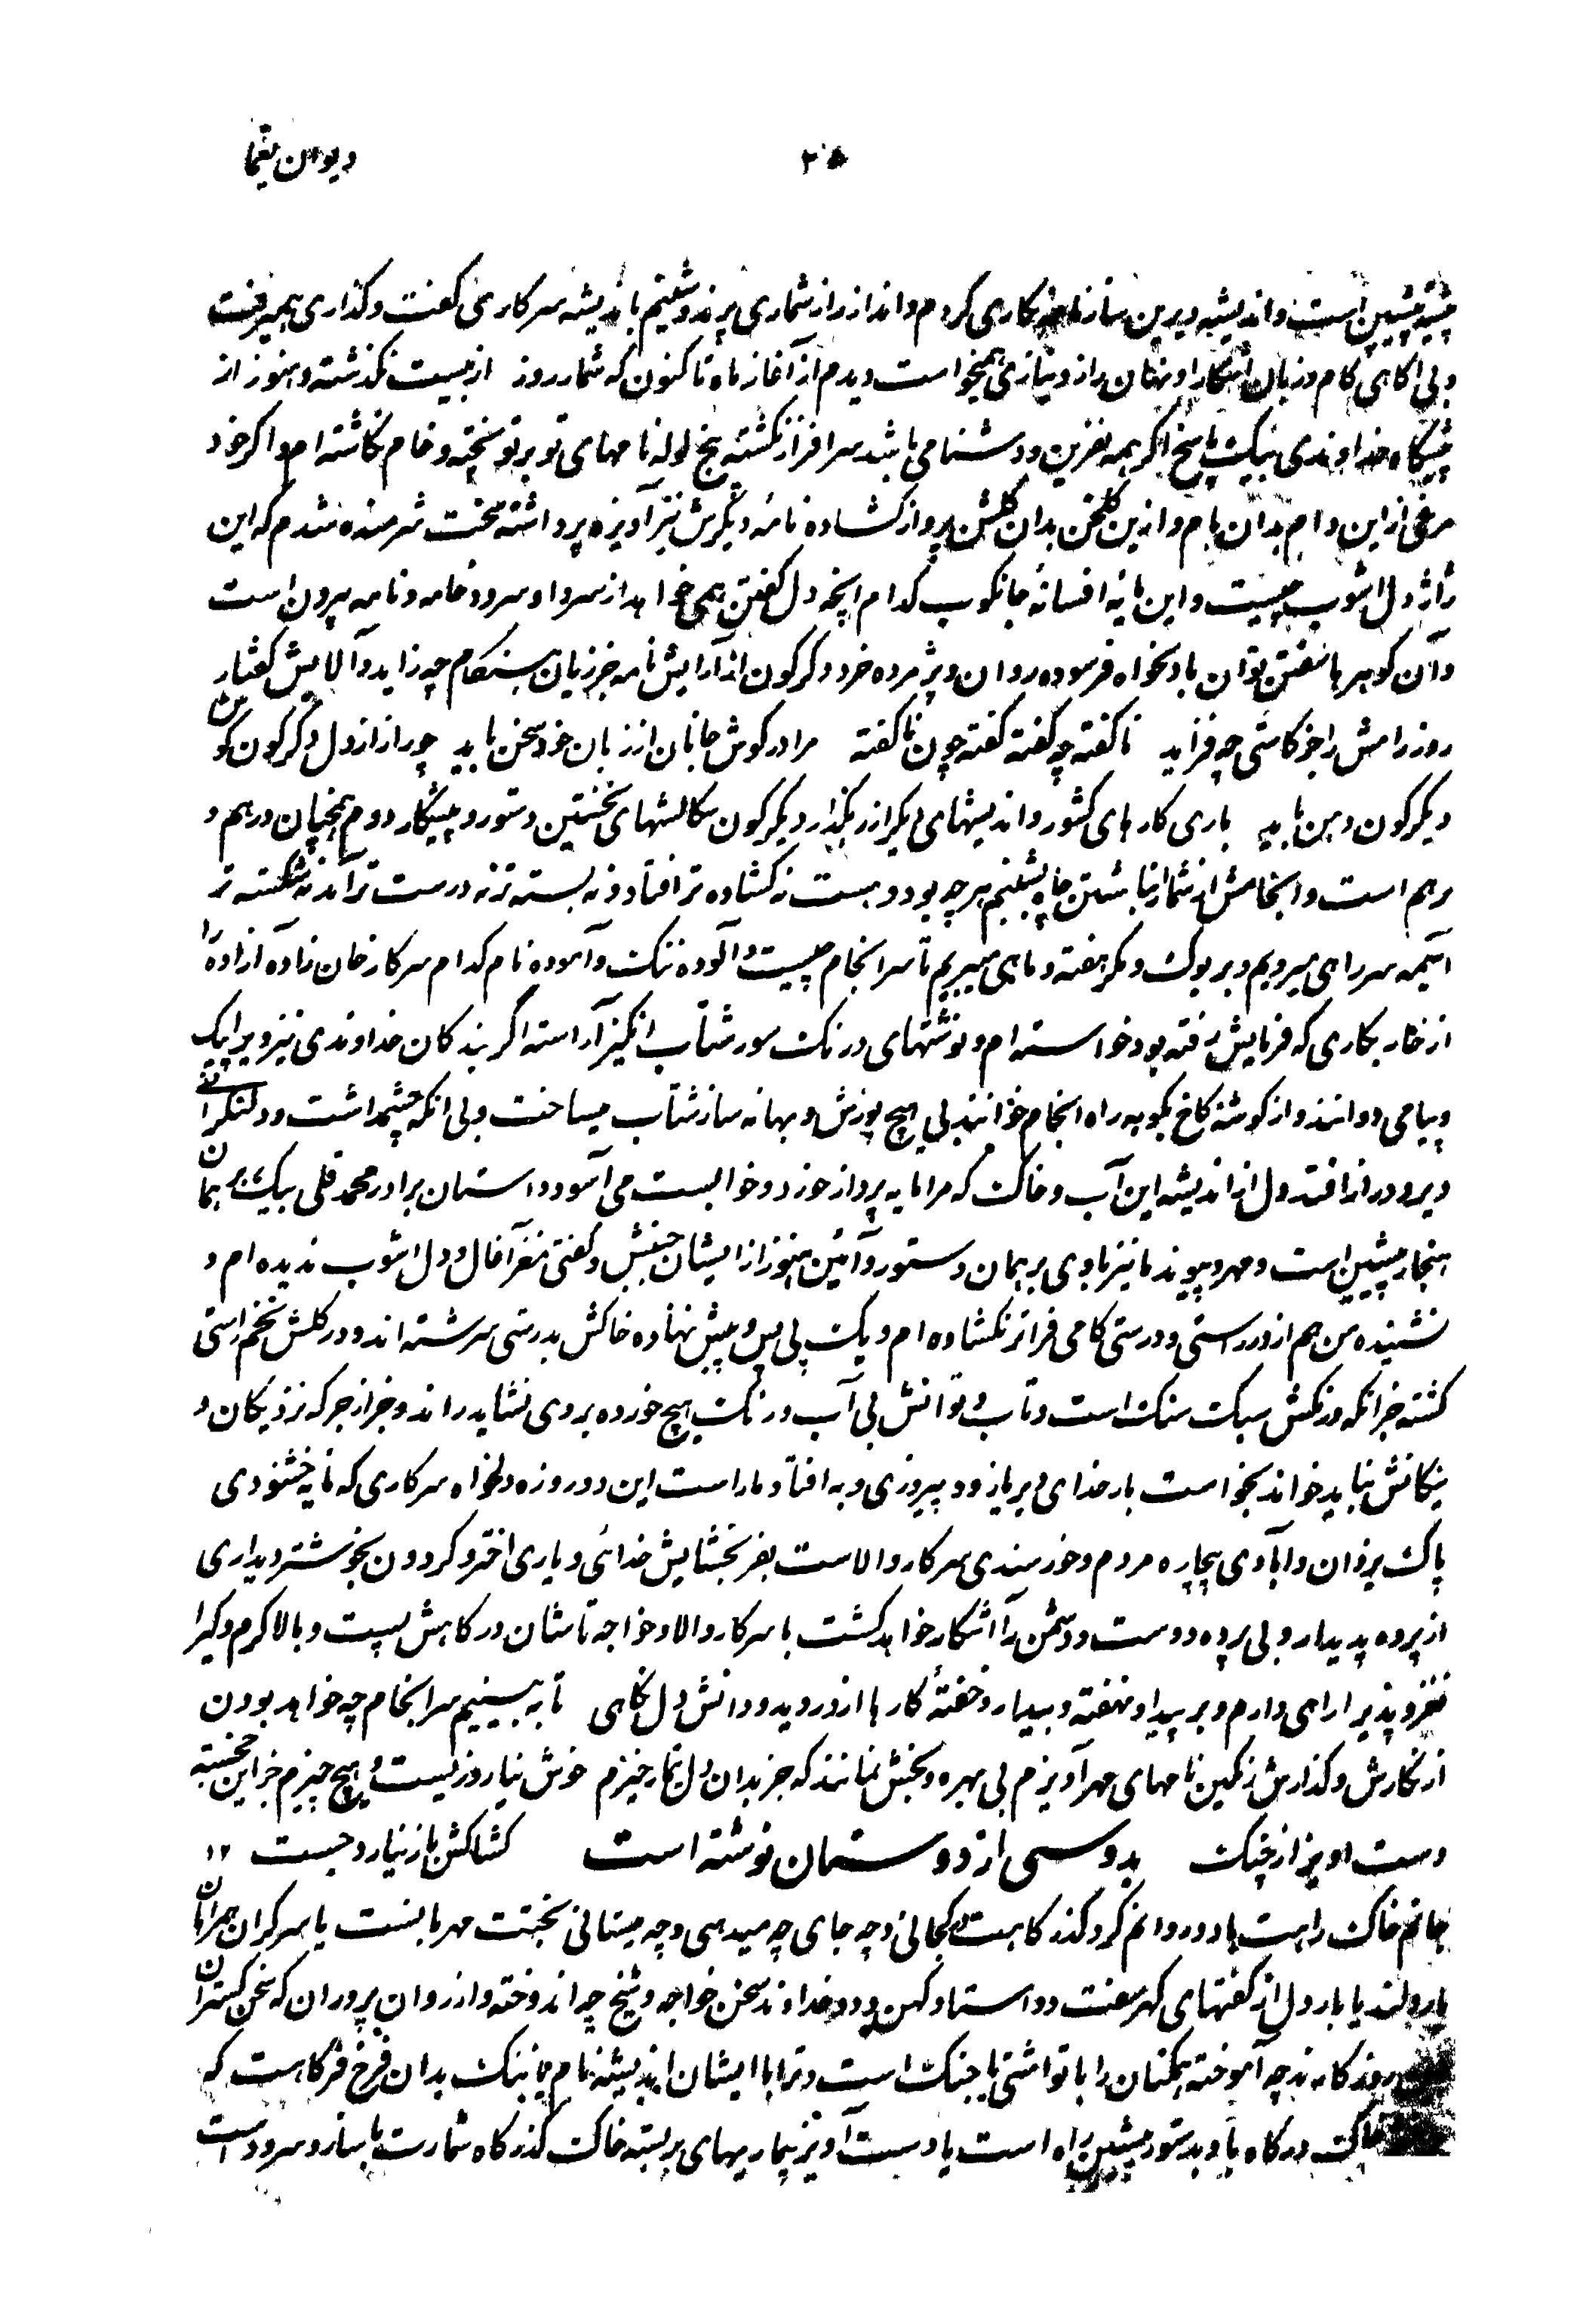 دیوان یغما
پیشه پیشین است و اندیشه دیرین ساز نامه نگاری کردم و انداز راز شماری پرند و شلیتم باندیشه سرکاری گفت و گذاری همیرفت
و بی آگاهی کام و زبان آشکارا و نهان راز و نیازی همیخواست دیدم از آغاز ماه تا کنون که شمار روز از بیست نگذشته و هنوز از
پیشگاه خداوندی بیک پاسخ اگر همه نفرین و دشنامی باشد سرافراز نگشته پنج لوله نامهای تو بر تو پخته و خام نگاشته ام و اگر خود
مرغی از این دام بدان بام و ازین گلخن بدان گلشن پرواز گشاده نامه دیگرش نیز آویزه پر داشته سخت شرمنده شدم که این
ژاژ دل اشوب چیست و این مایه افسانه جانکوب کدام انچه دل گفتن همی خواهد از سرواد و سرود خامه و نامه بیرون است
و آن گوهرها سفتن نتوان با دلخواه فرسوده روان و پژمرده خرد دگرگون از آرایش نامه جز زیان هنگام چه زاید و آلایش گفتار
روز رامش را جز کاستی چه فزاید ناگفته چه گفته گفته چون ناگفته مرا در گوش جانان از زبان خود سخن باید چو راز از دل دگرگون گون
دیگرگون دهن باید باری کارهای کشور و اندیشهای دیگر از رهگذار دیگرگون سگالشهای نخستین دستور و پیشکار دوم همچنان درهم و
برهم است و انجامش از شمار نباشتن چاه بشلنجم هرچه بود و هست نه گشاده تر افتاد و نه بسته تر نه درست تر آمد نه شکسته تر
آسیمه سر راهی میرویم و بر بوک و مگر هفته و ماهی میبریم تا سرانجام چیست و آلوده ننگ و آسوده نام کدام سرکار خان زاده آزاده را
از خار بکاری که فرمایش رفته بود خواسته ام و نوشتهای درنگ سوز شتاب انگیز آراسته اگر بندگان خداوندی نیز ویرا پیک
و پیامی دوانند و از گوشه کاخ بکوبه راه انجام خوانند بی هیچ پوزش و بهانه ساز شتاب میساخت و بی انکه چشمداشت و دلنگرانی
دیر و دراز افتد دل از اندیشه این آب و خاک که مرا مایه پرداز خورد و خوابست می آسود داستان برادر محمد قلی بیک بر همان
هنجار پیشین است و مهر و پیوند ما نیز با وی بر همان دستور و آئین هنوز از ایشان جنبش و گفتی مغز آغال و دل اشوب ندیده ام و
نشنیده من هم از در راستی و درستی گامی فراتر نگشاده ام و یک پی پس و پیش ننهاده خاکش بدرستی سرشته اند و در گلش تخم راستی
کشته جز انکه درنگش سبک سنگ است و تاب و توانش بی آب و رنگ هیچ خورده بر وی نشاید راند و جز از جرگه نزدیکان و
نیکانش نباید خواند بخواست بار خدای دیر یاز و د پیروزی و به افتاد ماراست این دو روزه دلخواه سرکاری که مایه خشنودی
پاک یزدان و آبادی بیچاره مردم و خورسندی سرکار والاست بفر بخشایش خدائی و یاری اختر و گردون بخوشتر دیداری
از پرده پدیدار و بی پرده دوست و دشمن را آشکار خواهد گشت با سرکار والا و خواجه تاشان در کاهش پست و بالا گرم و گیرا
نغز و پذیرا راهی دارم و بر پیدا و نهفته و بیدار و خفته کارها از در دید و دانش دل نگاهی تا به بینیم سرانجام چه خواهد بودن
از نگارش و گذارش رنگین نامهای مهر آویزم بی بهره و بخش نمانند که جز بدان دل بتمار خیزم خوش نیاروز نیست و هیچ چیزم جز این خجسته
دست اویز از چنگ کشاکش باز نیارد جست بدوستی از دوستان نوشته است
جانم خاک راهت باد و روانم گرد گذرگاهت کجائی و چه جای چه میدهی و چه میستانی بختت مهربانست یا سرگران همراهان
یار دلند یا بار دل از گفتهای گهر سفت دو استاد کهن و دو خداوند سخن خواجه و شیخ چه اندوخته و از روان پروران که سخن گستران
روزگارند چه آموخته همگنان را با تو آشتی یا جنگ است و ترا با ایشان اندیشه نام یا ننگ بدان فرخ فرگاهت که
خاک درگاه باد بدستور پیشین راه است یا دست آویز بیماریهای بر بسته خاک گذرگاه شمارت با ساز و سرود است